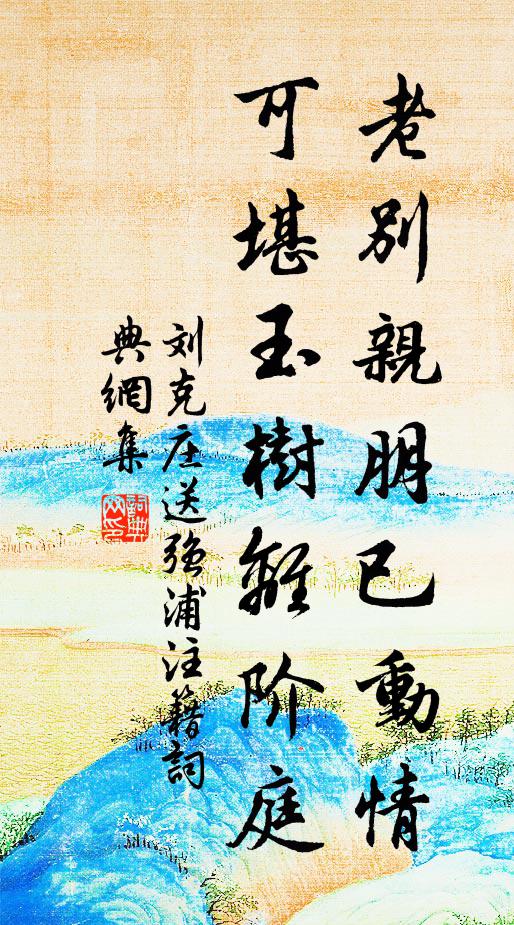 老别親朋已動情
可堪玉樹離阶庭
刘克庄送強浦注籍詞
典網集